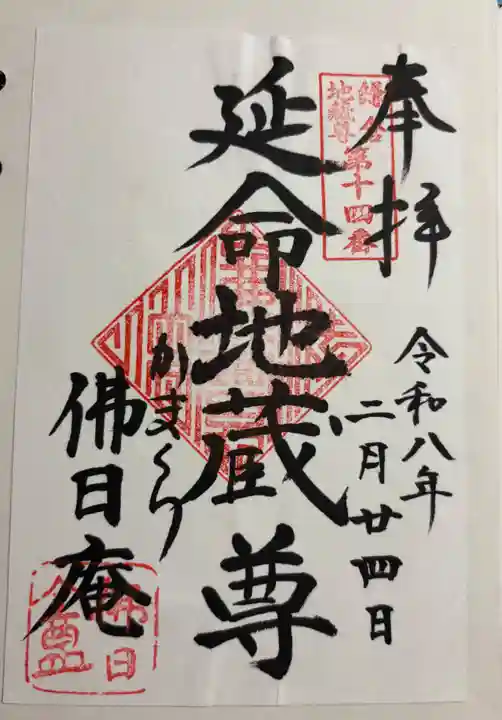 奉拝
令和八年
二月廿四日
鎌倉
地蔵尊
第十四番
延命地蔵尊
かまくら
佛日庵
佛日